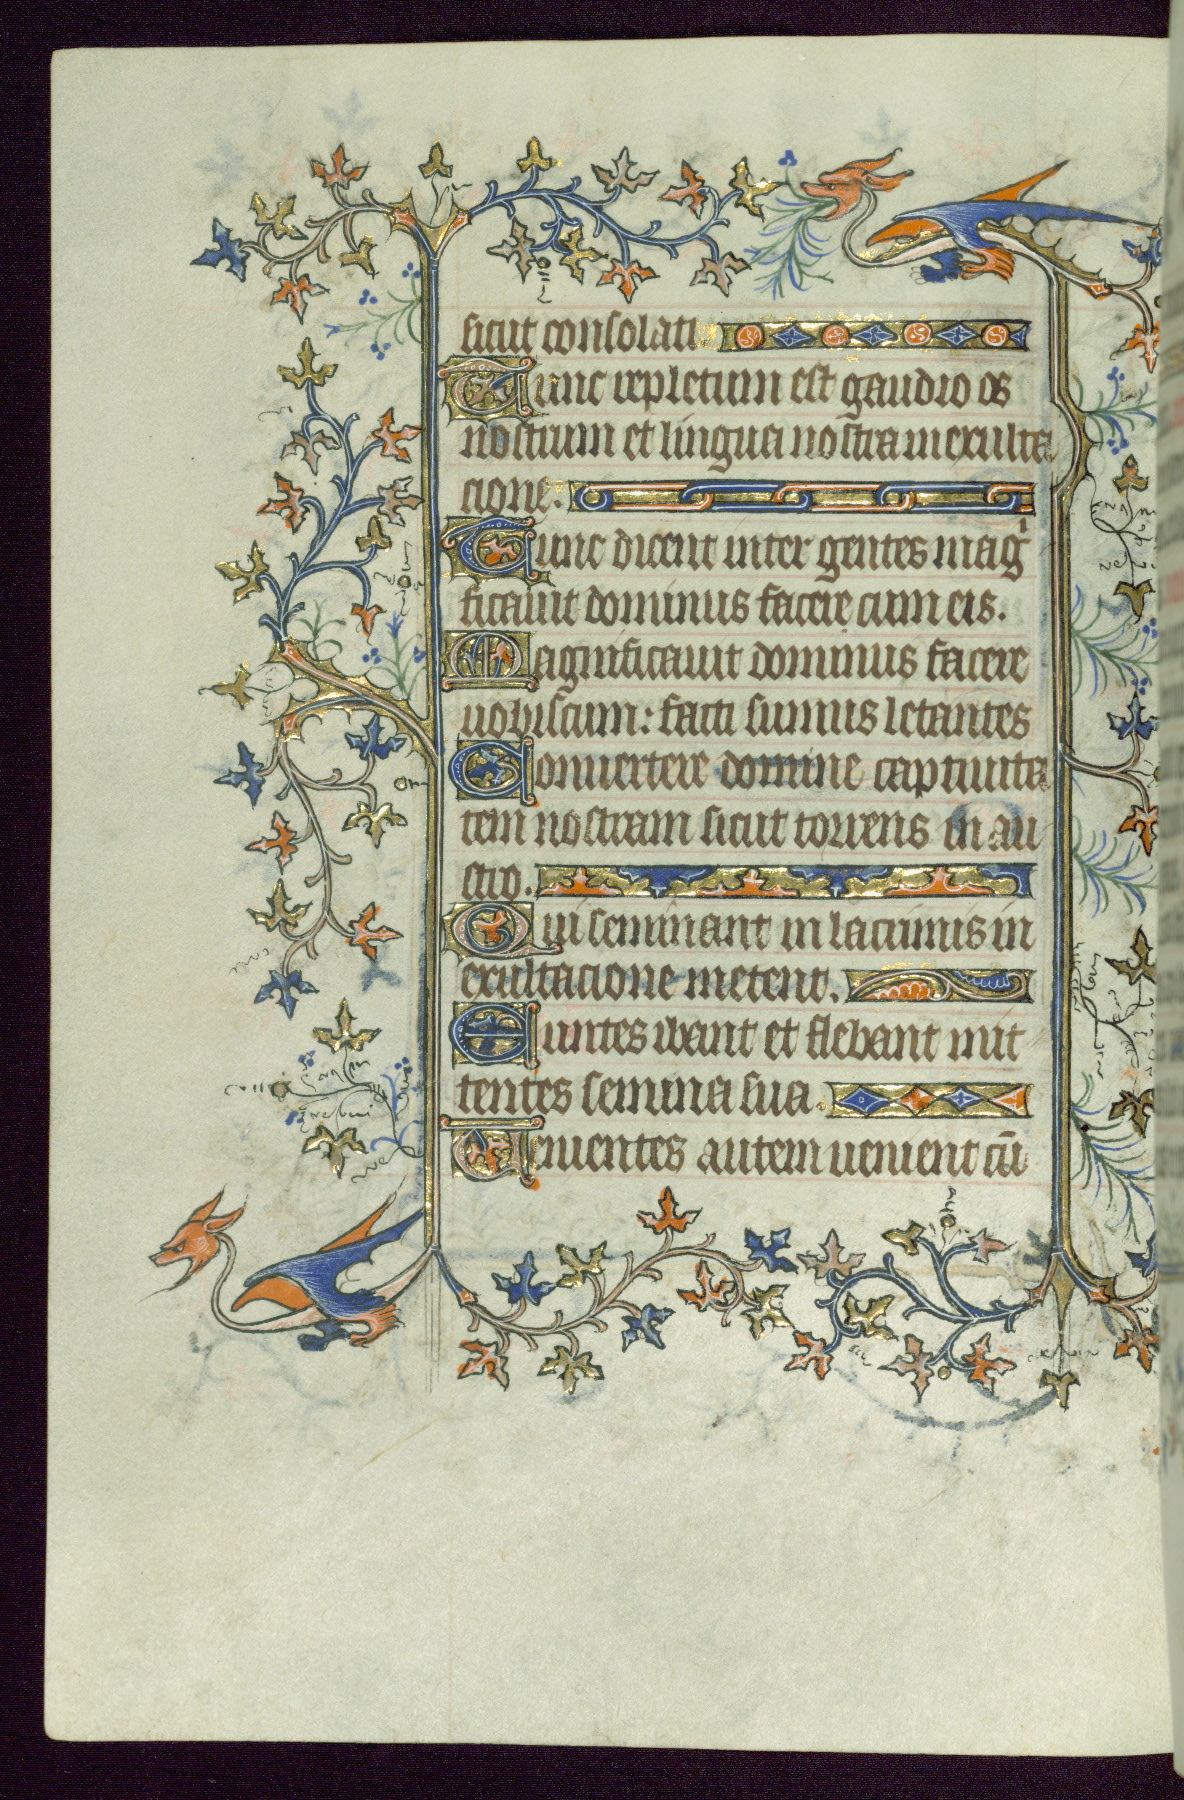 sicut consolati.
Tunc repletum est gaudio os
nostrum et lingua nostra in exulta
cione.
Tunc dicent inter gentes magͥ
ficauit dominus facere cum eis.
Magnificauit dominus facere
nobiscum: facti sumus letantes
Conuertere domine captiuita
tem nostram sicut torrens in au
stro.
Qui seminant in lacrimis in
exultacione metent.
Euntes ibant et flebant mit
tentes semina sua.
Uenientes autem uenient cū